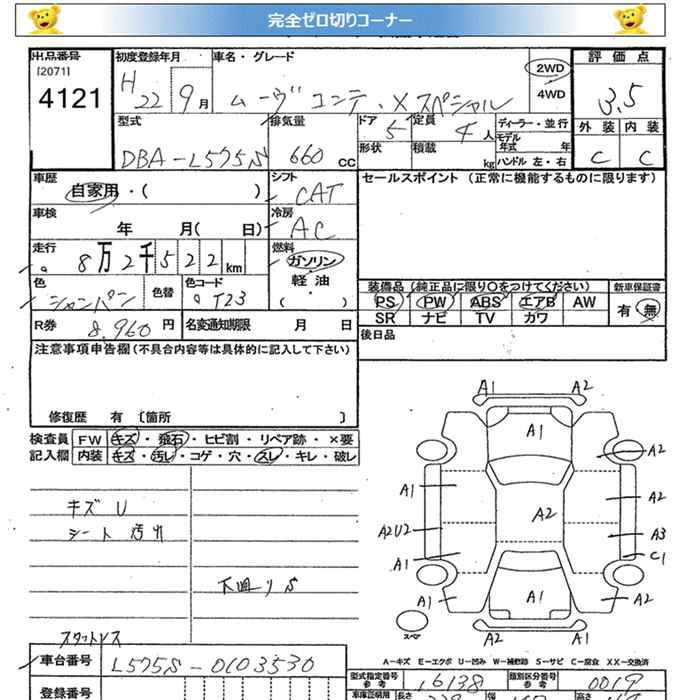 完全ゼロ切りコーナー
出品番号 初度登録年月 車名・グレード 2WD 評価点
[2071] 4WD
4121 H 22 9月 ムーヴコンテ・Xスペシャル 3.5
型式 排気量 ドア 5 定員 4人 ディーラー・並行 外装 内装
DBA-L575S 660 CC 形状 積載 kg モデル年式 年 C C
ハンドル 左・右
車歴 シフト セールスポイント (正常に機能するものに限ります)
自家用・( ) CAT
車検 冷房
年 月( 日) AC
走行 8万2千522km 燃料 ガソリン
軽・油
( )
色 色替 色コード 装備品(純正品に限り○をつけてください) 新車保証書
シャンパン T23 PS PW ABS エアB AW 有・無
SR ナビ TV カワ
R券 8,960円 名変通知期限 月 日 後日品
注意事項申告欄(不具合内容等は具体的に記入して下さい)
修復歴 有 [箇所 ]
検査員 FW キズ・飛石・ヒビ割・リペア跡・×要
記入欄 内装 キズ・汚れ・コゲ・穴・スレ・キレ・破レ
キズ U
シート 汚れ
下回りS
A1 A2
A1
A2
A1 A2
A2
A2U2 A3
A1 C1
A1 A1 A2
スペア
A2 A1
A-キズ E-エクボ U-凹み W-補修跡 S-サビ C-腐食 XX-交換済
スタットレス
車台番号 L575S-0103530
型式指定番号 参考 16138 類別区分番号 参考 0019
登録番号
車庫証明用 長さ 幅 高さ